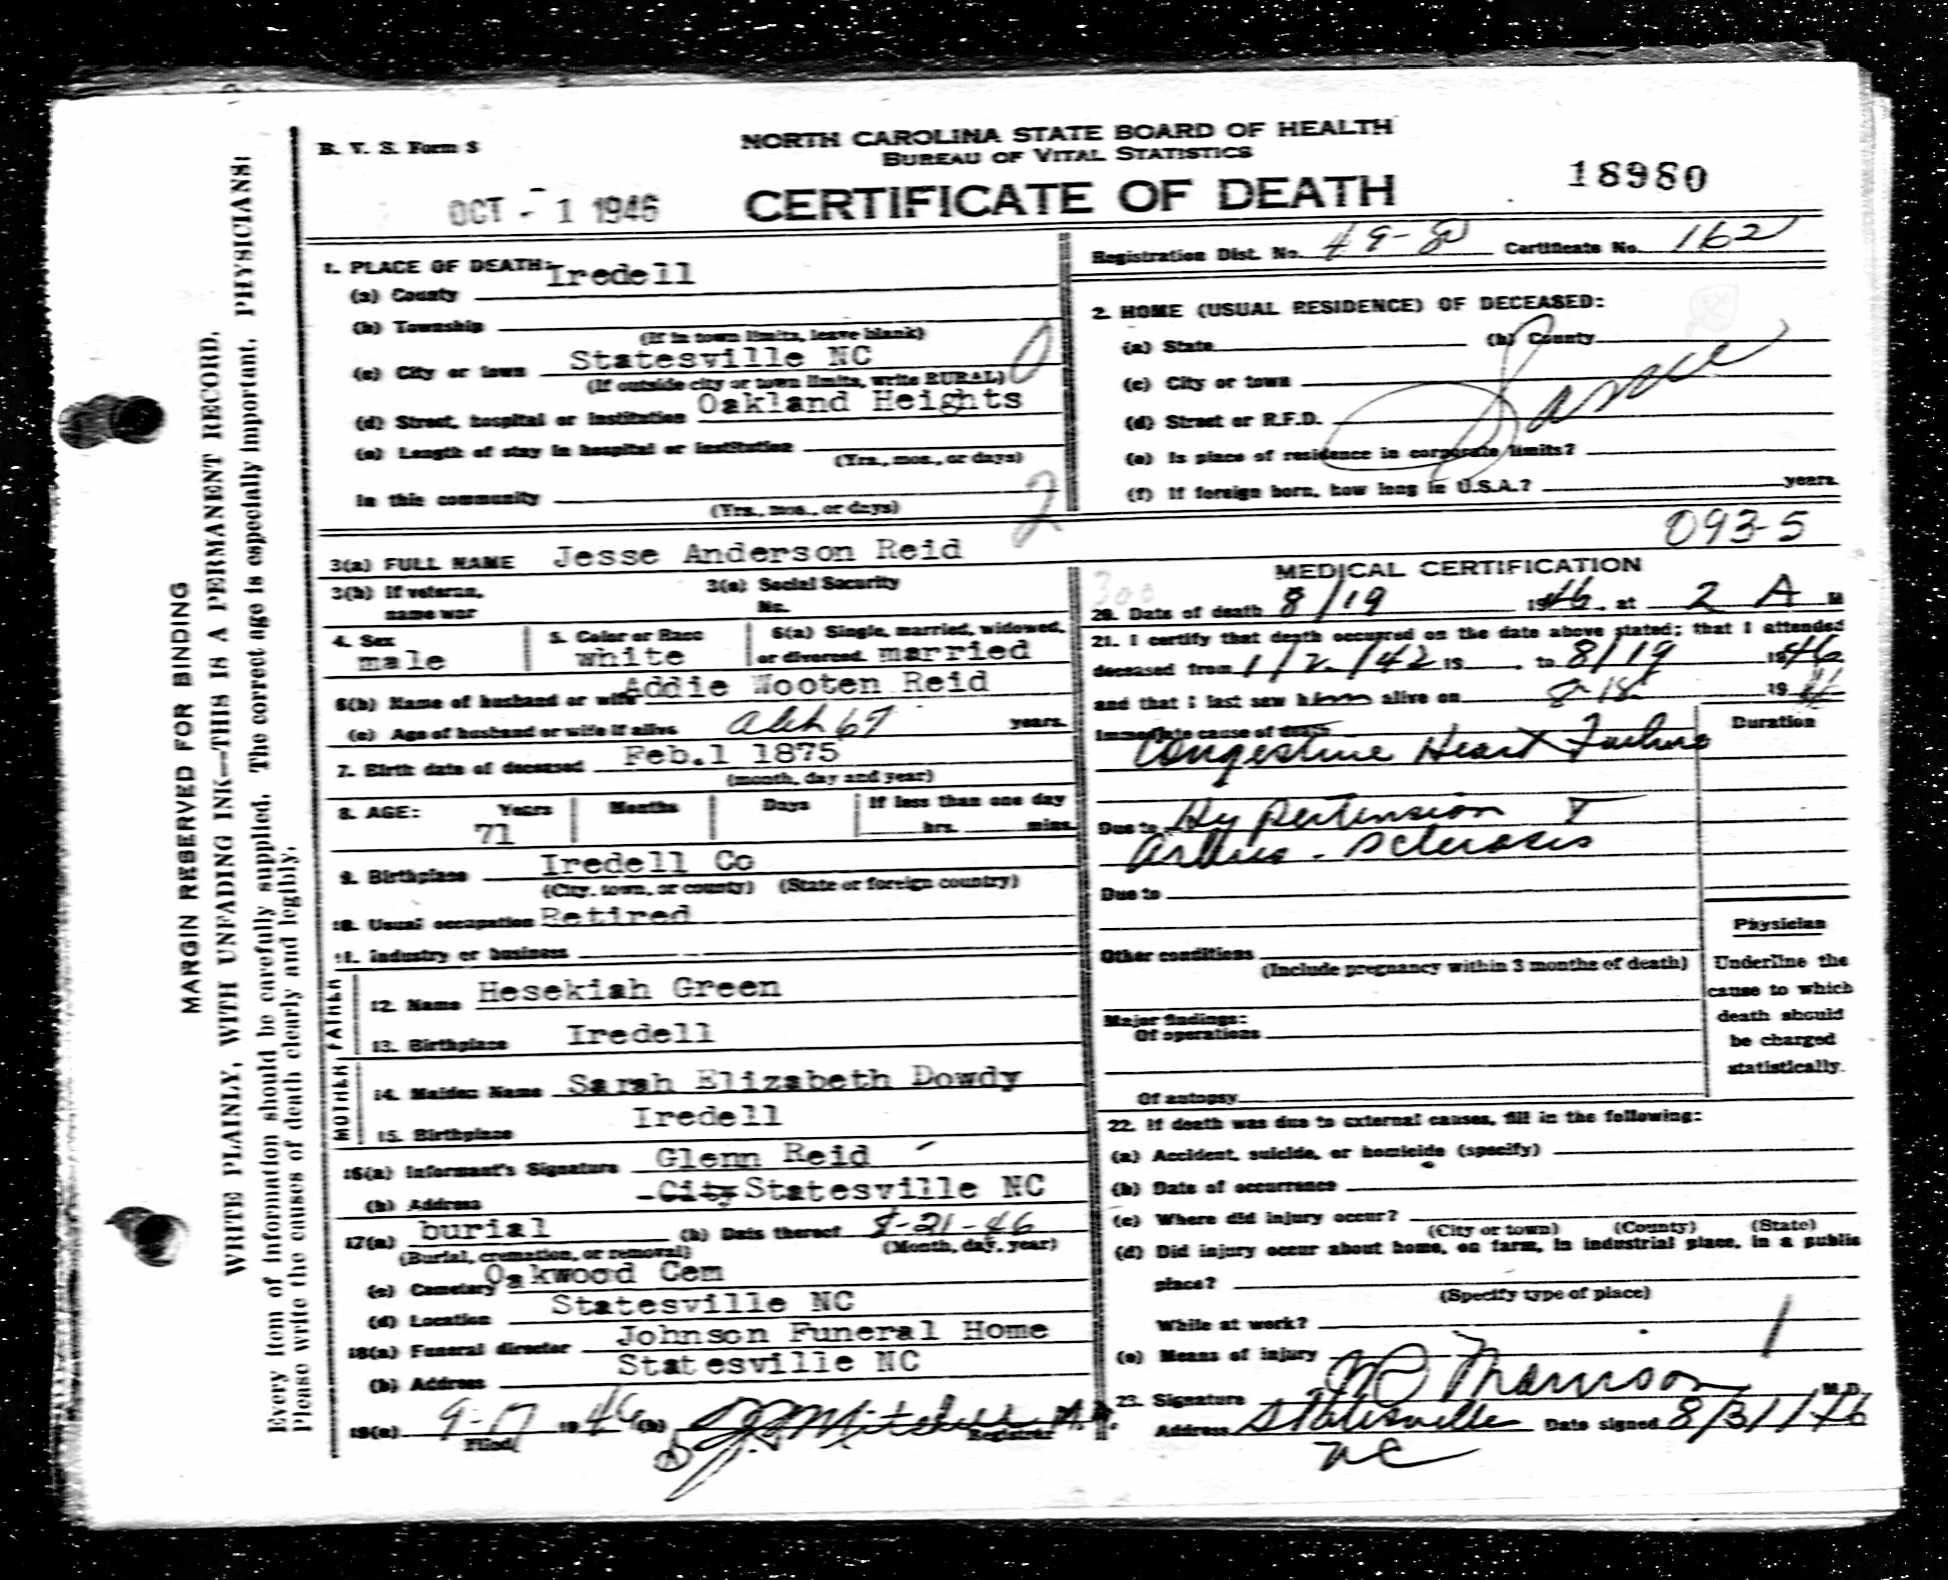 B. V. S. Form 8
NORTH CAROLINA STATE BOARD OF HEALTH
BUREAU OF VITAL STATISTICS
OCT - 1 1946
CERTIFICATE OF DEATH
18980
MARGIN RESERVED FOR BINDING
WRITE PLAINLY, WITH UNFADING INK—THIS IS A PERMANENT RECORD.
Every item of information should be carefully supplied. The correct age is especially important. PHYSICIANS:
Please write the causes of death clearly and legibly.
Registration Dist. No. 49-80 Certificate No. 162
1. PLACE OF DEATH:
(a) County Iredell
(b) Township
(If in town limits, leave blank)
(c) City or town Statesville NC 0
(If outside city or town limits, write RURAL)
(d) Street, hospital or institution Oakland Heights
(e) Length of stay in hospital or institution
(Yrs., mos., or days)
In this community 2
(Yrs., mos., or days)
2. HOME (USUAL RESIDENCE) OF DECEASED:
(a) State (b) County
(c) City or town
(d) Street or R.F.D. Same
(e) Is place of residence in corporate limits?
(f) If foreign born, how long in U.S.A.? years.
3(a) FULL NAME Jesse Anderson Reid
093-5
3(b) If veteran, name war
3(c) Social Security No.
4. Sex male
5. Color or Race white
6(a) Single, married, widowed, or divorced. married
6(b) Name of husband or wife Addie Wooten Reid
(c) Age of husband or wife if alive 67 years.
7. Birth date of deceased Feb.1 1875
(month, day and year)
8. AGE: Years Months Days If less than one day
71 hrs. mins.
9. Birthplace Iredell Co
(City, town, or county) (State or foreign country)
10. Usual occupation Retired
11. Industry or business
FATHER
12. Name Hesekiah Green
13. Birthplace Iredell
MOTHER
14. Maiden Name Sarah Elizabeth Dowdy
15. Birthplace Iredell
16(a) Informant's Signature Glenn Reid
(b) Address City Statesville NC
17(a) burial (b) Date thereof 8-21-46
(Burial, cremation, or removal) (Month, day, year)
(c) Cemetery Oakwood Cem
(d) Location Statesville NC
18(a) Funeral director Johnson Funeral Home
(b) Address Statesville NC
19(a) 9-17 1946 (b)
Filed Registrar
MEDICAL CERTIFICATION
20. Date of death 8/19 1946, at 2 A M
21. I certify that death occurred on the date above stated; that I attended
deceased from 1/2/42 19 , to 8/19 1946
and that I last saw him alive on 8-18 1946
Immediate cause of death Duration
Congestive Heart Failure
Due to Hypertension &
Arterio-sclerosis
Due to
Other conditions
(Include pregnancy within 3 months of death)
Major findings:
Of operations
Of autopsy
Physician
Underline the
cause to which
death should
be charged
statistically.
22. If death was due to external causes, fill in the following:
(a) Accident, suicide, or homicide (specify)
(b) Date of occurrence
(c) Where did injury occur?
(City or town) (County) (State)
(d) Did injury occur about home, on farm, in industrial place, in a public
place?
(Specify type of place)
While at work?
(e) Means of injury
23. Signature M.D.
Address Statesville Date signed 8/31/46
NC